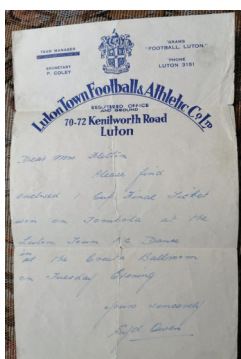 TEAM MANAGER
SECRETARY
P. COLEY
'GRAMS
"FOOTBALL, LUTON."
'PHONE
LUTON 3151
Luton Town Football & Athletic Co Ltd
REGISTERED OFFICE
AND GROUND
70-72 Kenilworth Road
Luton
Dear Miss
Please find
enclosed 1 Cup Final Ticket
won on Tombola at the
Luton Town F.C. Dance
at the Ballroom
on Tuesday Evening
Yours sincerely
Syd Owen